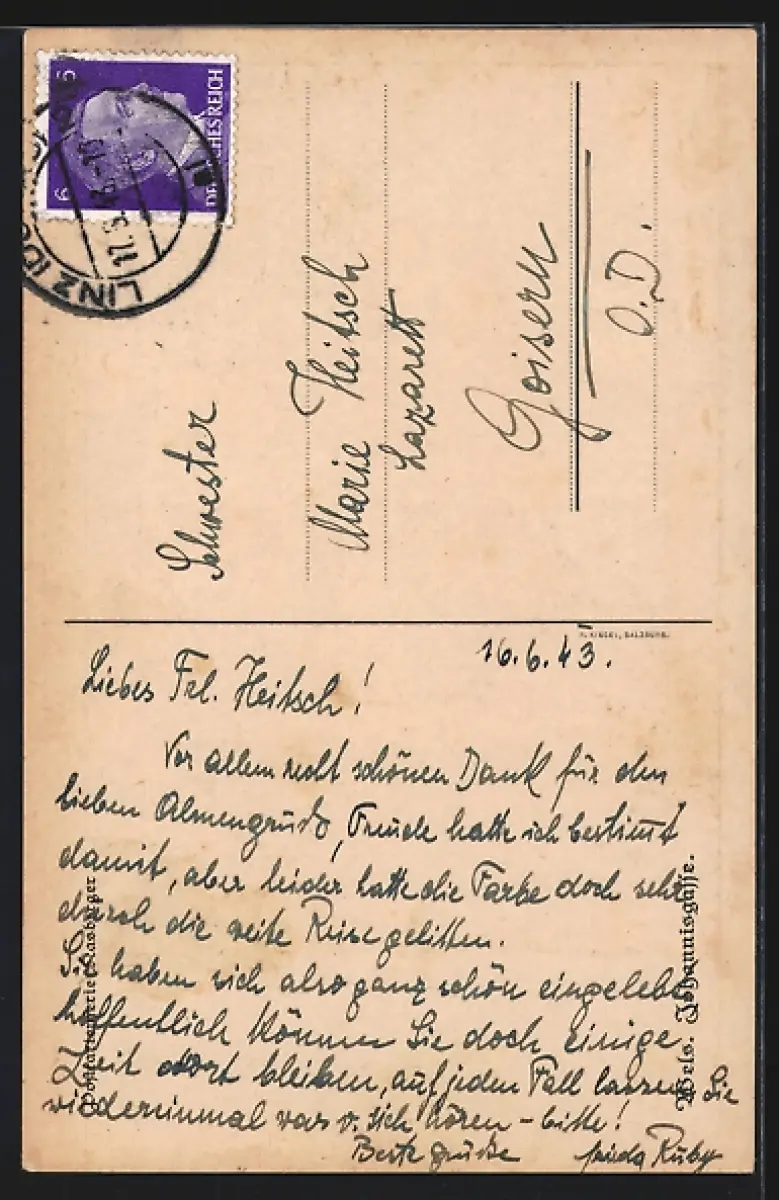 6 6
DEUTSCHES REICH
LINZ (DONAU)
Schwester
Marie Heitsch
Lazarett
Goisern
O.D.
16.6.43.
Liebes Frl. Heitsch!
Vor allem recht schönen Dank für den
lieben Almengruß, Freude hatte ich bestimmt
damit, aber leider hatte die Farbe doch sehr
durch die weite Reise gelitten.
Sie haben sich also ganz schön eingelebt,
hoffentlich können Sie doch einige
Zeit dort bleiben, auf jeden Fall lassen Sie
wiedereinmal was v. sich hören - bitte!
Beste Grüße Frieda Ruby
Wels. Johannisgasse.